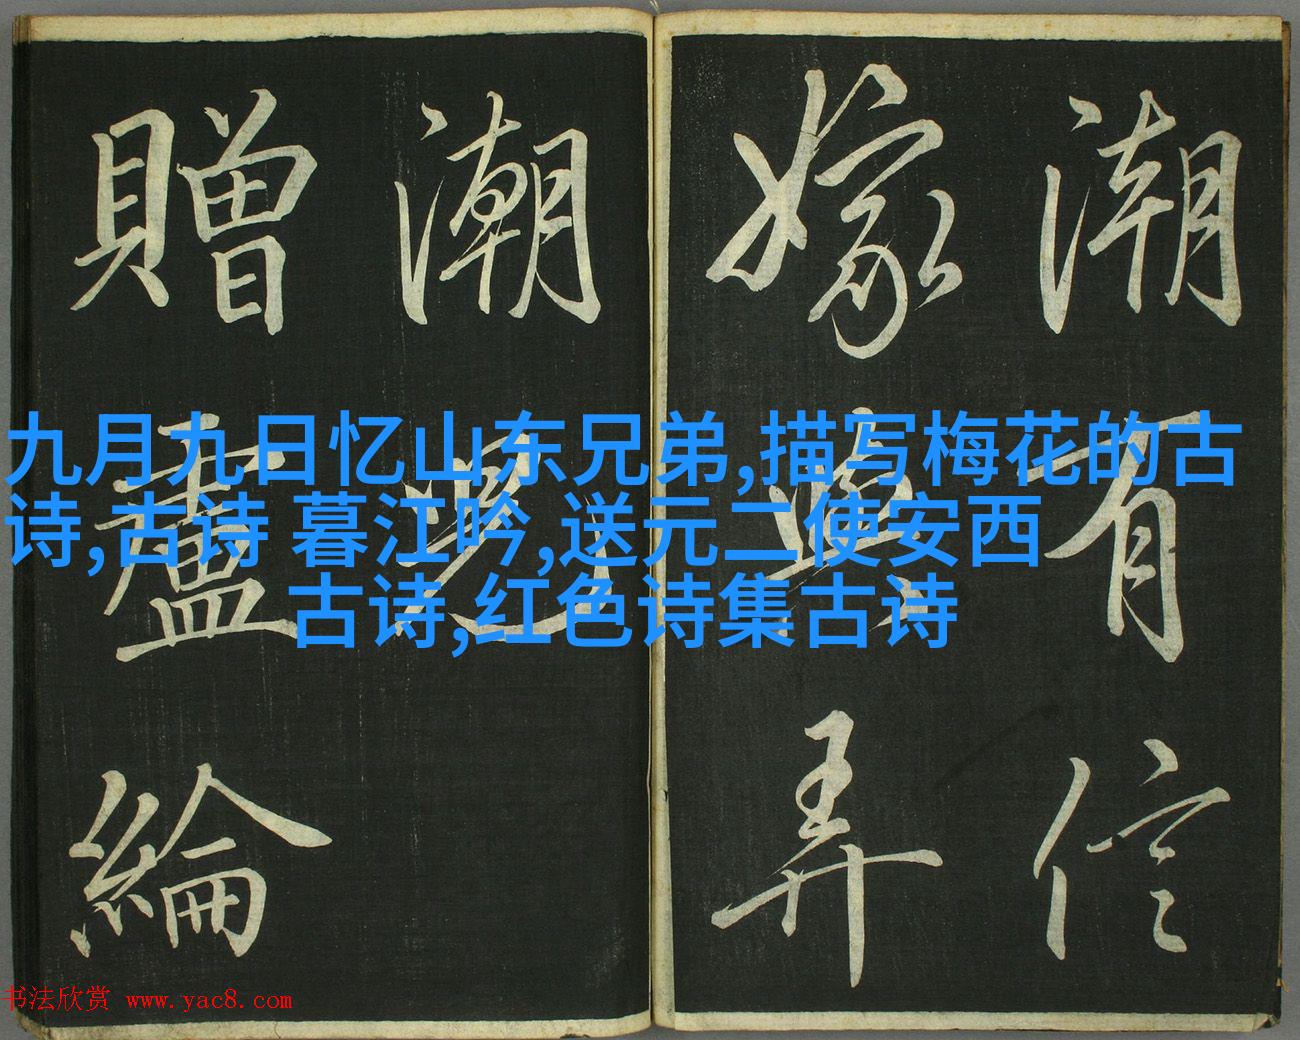 潮有信
嫁與弄
潮兒
贈盧綸
九月九日忆山东兄弟,描写梅花的古
诗,古诗 暮江吟,送元二使安西
古诗,红色诗集古诗
书法欣赏 www.yac8.com